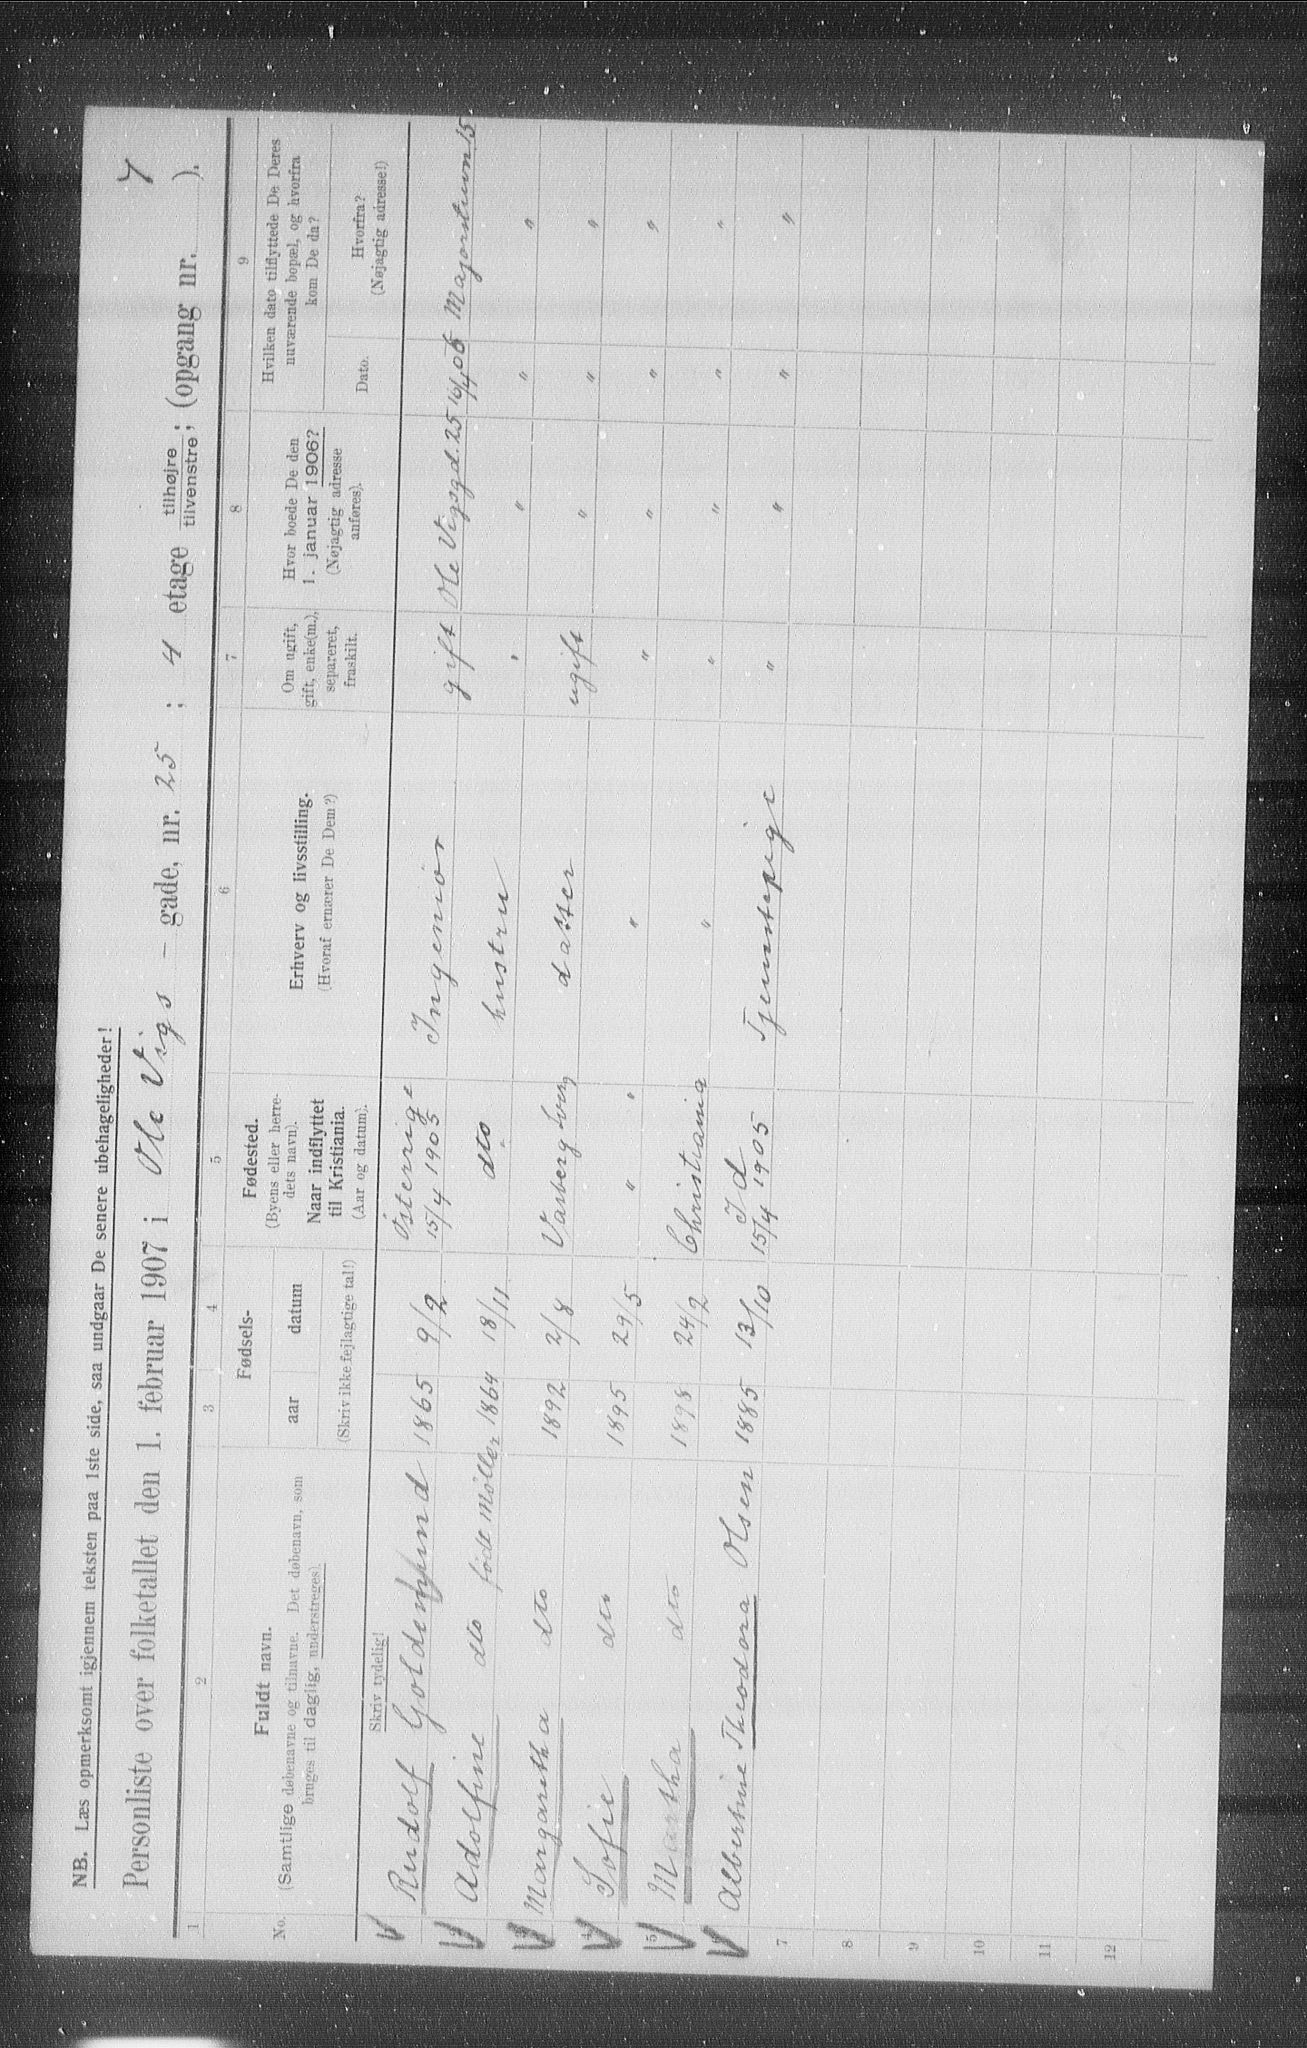 NB. Læs opmerksomt igjennem teksten paa 1ste side, saa undgaar De senere ubehageligheder!
7
Personliste over folketallet den 1. februar 1907 i Ole Vigs - gade, nr. 25 ; 4 etage tilhøjre / tilvenstre; (opgang nr. ).
1 2 3 4 5 6 7 8 9
No. Fuldt navn. (Samtlige døbenavne og tilnavne. Det døbenavn, som bruges til daglig, understreges). Skriv tydelig!
Fødsels- aar datum (Skriv ikke fejlagtige tal!)
Fødested. (Byens eller herredets navn). Naar indflyttet til Kristiania. (Aar og datum).
Erhverv og livsstilling. (Hvoraf ernærer De Dem?)
Om ugift, gift, enke(m.), separeret, fraskilt.
Hvor boede De den 1. januar 1906? (Nøjagtig adresse anføres).
Hvilken dato tilflyttede De Deres nuværende bopæl, og hvorfra kom De da? Dato. Hvorfra? (Nøjagtig adresse!)
Rudolf 1865 9/2 Østerrige 15/4 1905 Ingeniør gift Ole Vigsgd. 25 16/4 06 Majorstuen 15
Adolfine dto født Møller 1864 18/11 dto hustru " " " "
Margaretha dto 1892 2/8 Varberg datter ugift " " "
4 Sofie dto 1895 29/5 " " " " " " "
5 Martha dto 1898 24/2 Christiania " " " " "
Albertine Theodora Olsen 1885 13/10 Id 15/4 1905 Tjenstepige " " " "
7
8
9
10
11
12